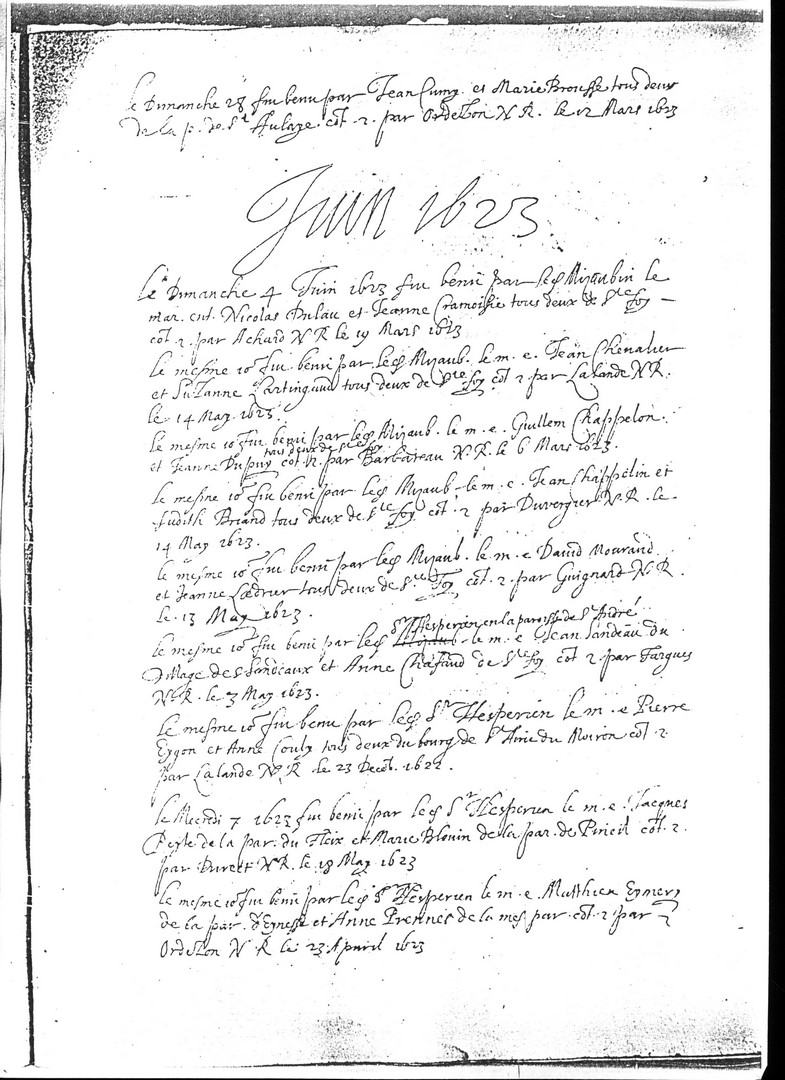 le Dimanche 28 fut beni par Jean Cumy et Marie Brousse tous deux
de la p. de St Aulaye cot. 2. par Ordelon N R. le 12 Mars 1623
Juin 1623
le Dimanche 4 Juin 1623 fut beni par led Mizaubin le
mar. ent. Nicolas Dulau et Jeanne Cramoisie tous deux de Ste foy
cot 2. par Achard N R le 19 Mars 1623
le mesme io. fut beni par led Mizaub. le m. e. Jean Chevalier
et Suzanne tous deux de Ste foy cot 2 par Lalande N R.
le 14 May 1623.
le mesme io fut beni par led Mizaub. le m. e. Guillem Chappelon
tous deux de Ste foy
et Jeanne Dupuy cot. 2. par Barbateau N. R. le 6 Mars 1623.
le mesme io fut beni par led Mizaub. le m. e. Jean Chappelin et
Judith Briand tous deux de Ste foy cot. 2 par Duvergier N. R. le
14 May 1623.
le mesme io fut beni par led Mizaub. le m. e David Mourand
et Jeanne tous deux de Ste Foy cot. 2. par Guignard N R.
le 13 May 1623.
Sr Hesperien en la paroisse de St André
le mesme io fut beni par led le m. e Jean Landeau du
village des Landeaux et Anne Chafaud de Ste foy cot 2. par Fargues
N. R. le 3 May 1623.
le mesme io fut beni par led Sr Hesperien le m. e Pierre
Eygon et Anne Couly tous deux du bourg de du Moiron cot. 2.
par Lalande N. R le 23 Decēb. 1622.
le Mecredi 7 1623 fut beni par led Sr Hesperien le m. e. Jacques
de la par. du Fleix et Marie Blouin de la par. de Pineil cot. 2.
par N R. le 18 May 1623
le mesme io fut beni par led Sr Hesperien le m. e. Matthieu Eymery
de la par. d'Eynesse et Anne de la mes. par. cot. 2 par
Ordelon N R le 23 Apvril 1623